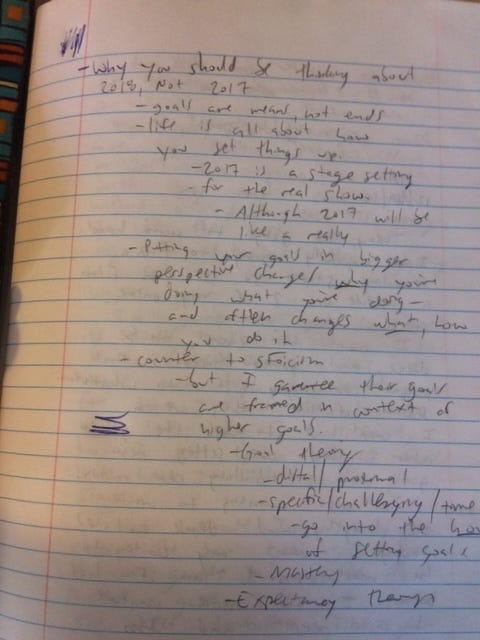 - Why you should be thinking about
2018, Not 2017
- goals are means, not ends
- life is all about how
you set things up.
- 2017 is a stage setting
- for the real show.
- Although 2017 will be
like a really
- Putting your goals in bigger
perspective changes why you're
doing what you're doing -
and often changes what, how
you do it
- counter to stoicism
- but I garentee their goals
are framed in context of
higher goals.
- Goal theory
- distal/proximal
- specific/challenging/time
- go into the how
of setting goals
- Mastery
- Expectancy theory